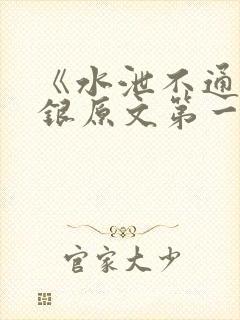 《水泄不通
银原文第一
官家大少